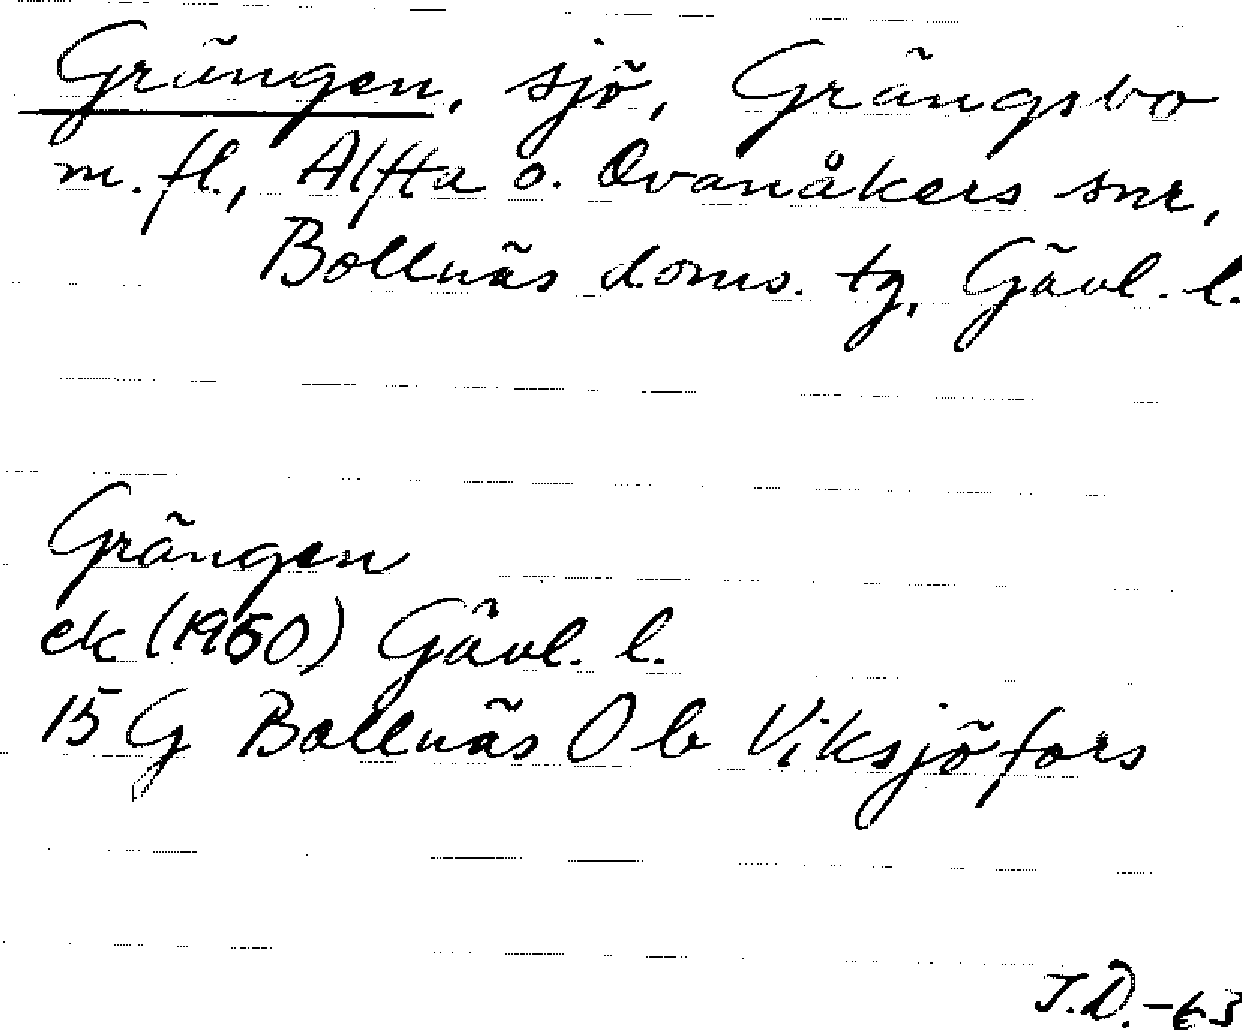 Grängen, sjö, Grängsbo
m. fl., Alfta o. Ovanåkers snr,
Bollnäs doms. tg, Gävl. l.
Grängen
ek (1960) Gävl. l.
15 G Bollnäs 0 b Viksjöfors
J.D.-63